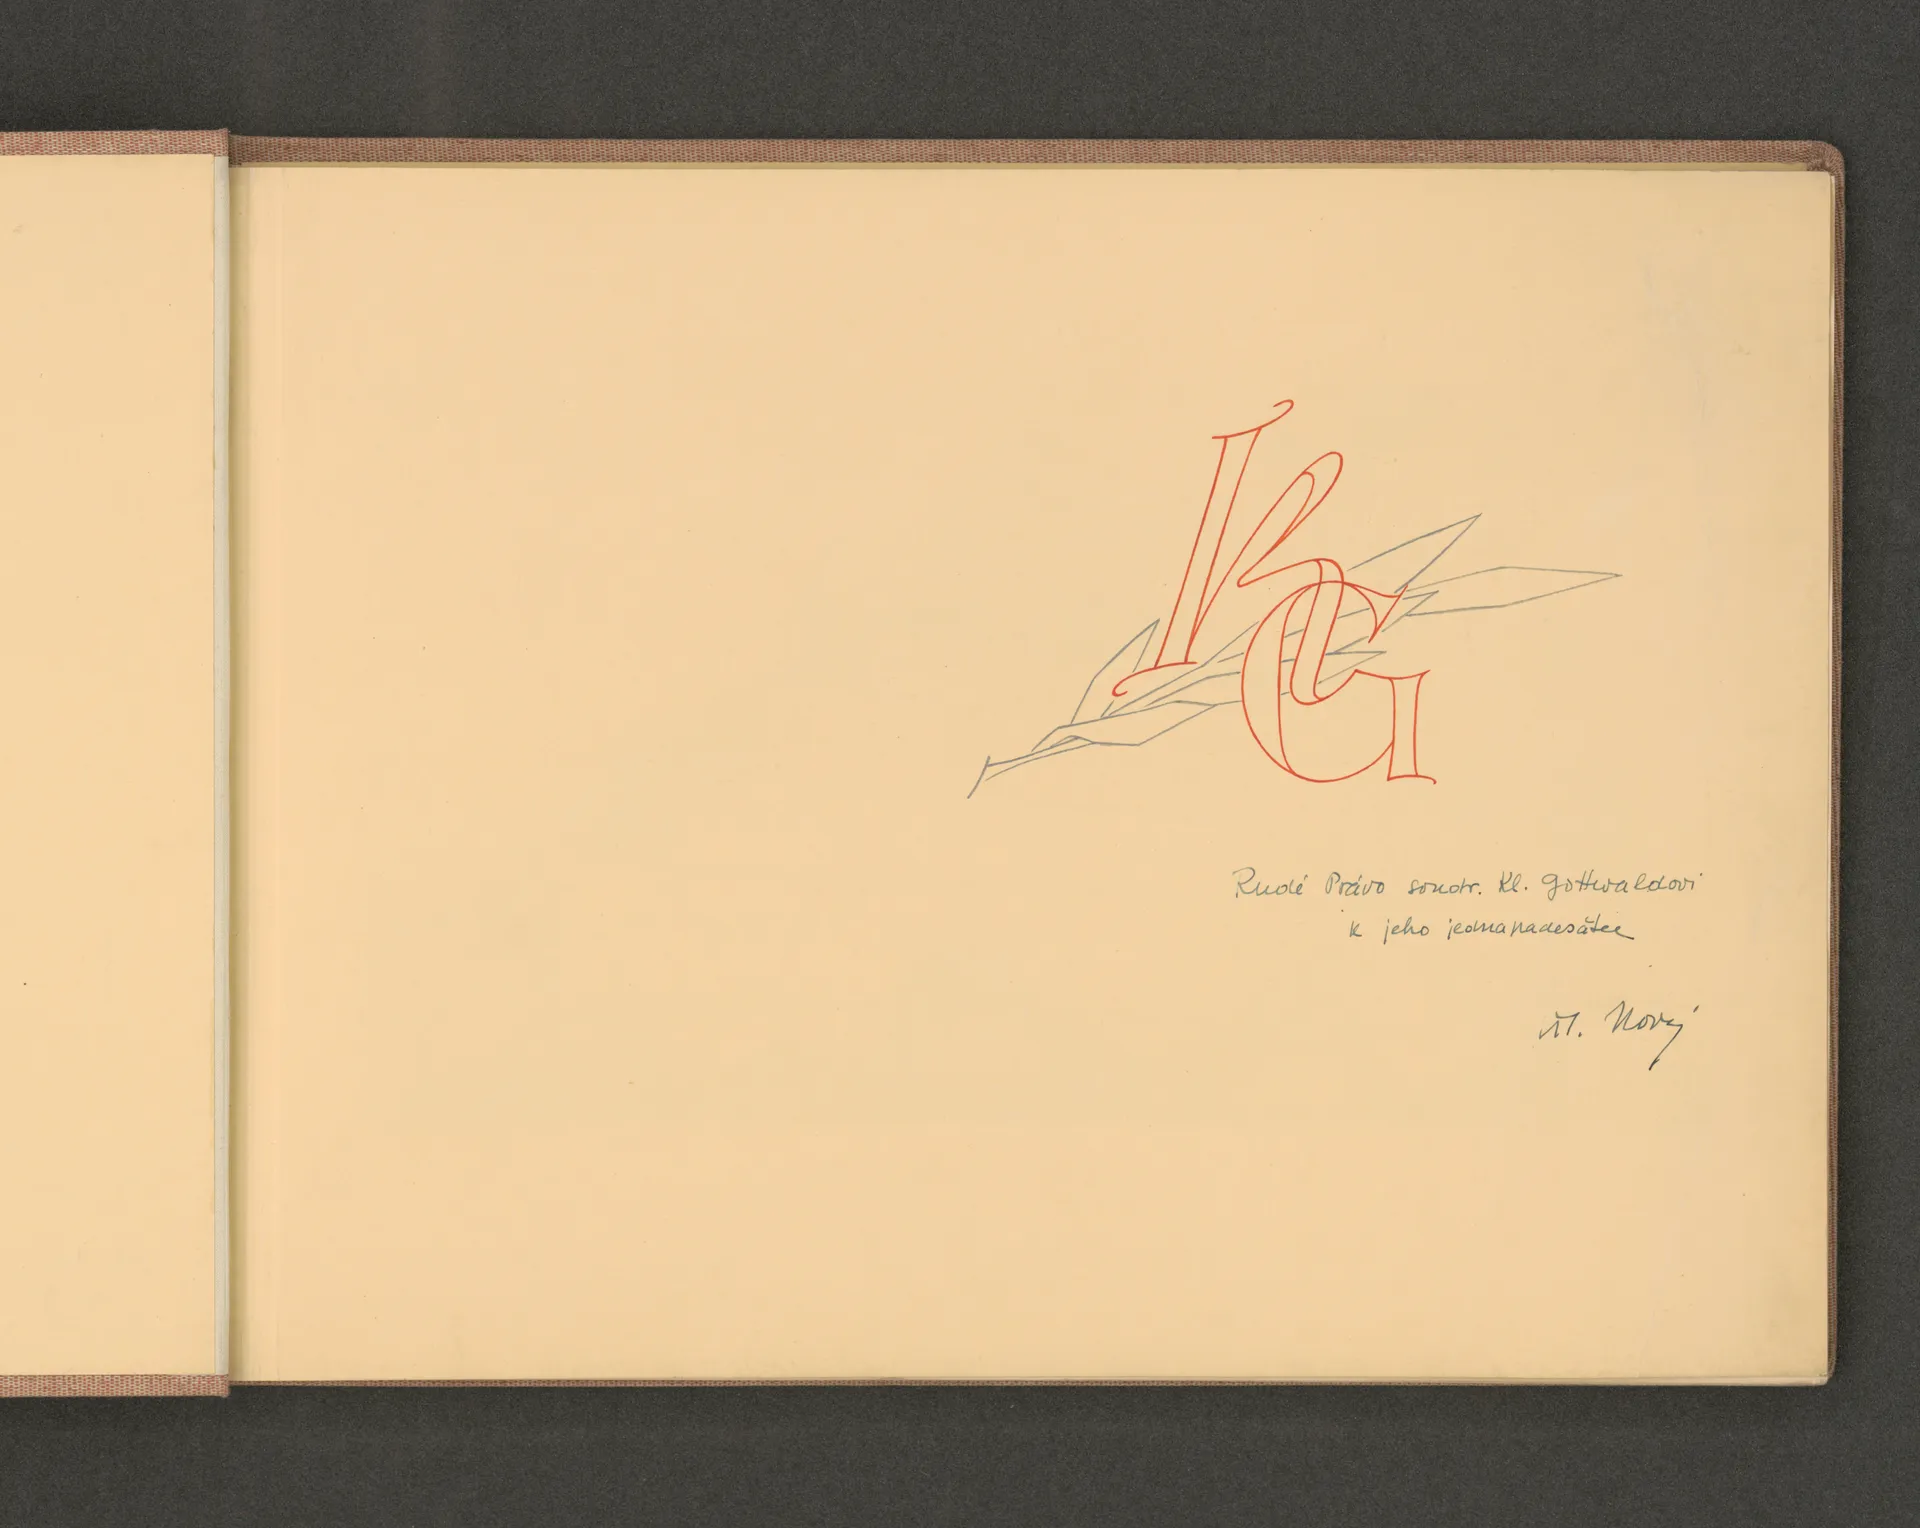 KG
Rudé Právo soudr. Kl. Gottwaldovi
k jeho jednapadesátce
Vl. Nový